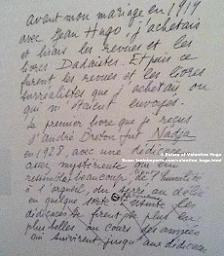 avant mon mariage en 1919
avec Jean Hugo j'achetais
et lisais les revues et les
livres Dadaistes. Et puis ce
furent les revues et les livres
surréalistes que j'achetais ou
qui m'étaient envoyés.
Le premier livre que je reçus
d'André Breton fut Nadja
en 1928, avec une dédicace
assez mystérieuse qui
© Estate of Valentine Hugo
ressemble beaucoup de
à l'orgueil, du
en quelque sorte. Ensuite les
dédicaces se firent de plus en
plus belles au cours des années
qui suivirent jusqu'aux